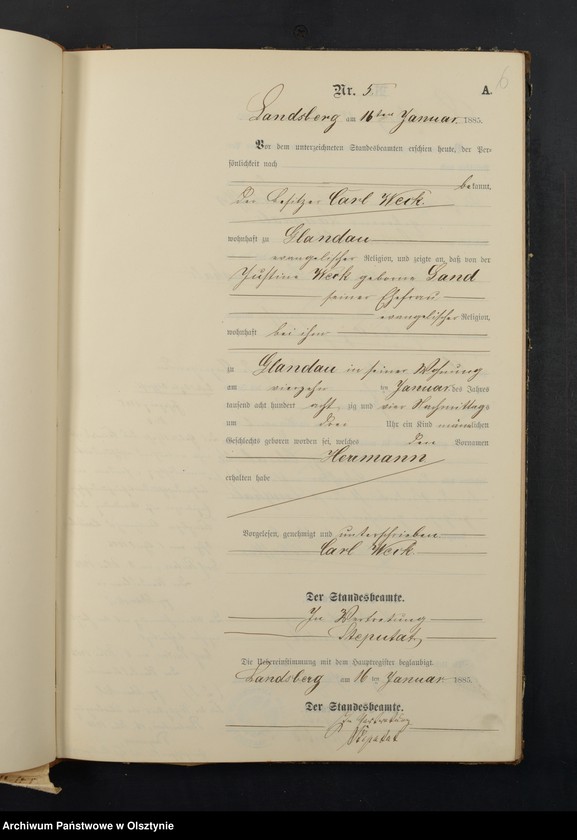 6
Nr. 5. A.
Landsberg am 16ten Januar 1885.
Vor dem unterzeichneten Standesbeamten erschien heute, der Per-
sönlichkeit nach
bekannt,
der Besitzer Carl Weck.
wohnhaft zu Glandau
evangelischer Religion, und zeigte an, daß von der
Justine Weck geborne Sand
seiner Ehefrau
evangelischer Religion,
wohnhaft bei ihm
zu Glandau in seiner Wohnung
am vierzehn ten Januar des Jahres
tausend acht hundert acht zig und vier Nachmittags
um drei Uhr ein Kind männlichen
Geschlechts geboren worden sei, welches den Vornamen
Hermann
erhalten habe
Vorgelesen, genehmigt und unterschrieben
Carl Weck
Der Standesbeamte.
In Vertretung
Steputat,
Die Uebereinstimmung mit dem Hauptregister beglaubigt.
Landsberg am 16 ten Januar 1885.
Der Standesbeamte.
In Vertretung
Steputat
Archiwum Państwowe w Olsztynie